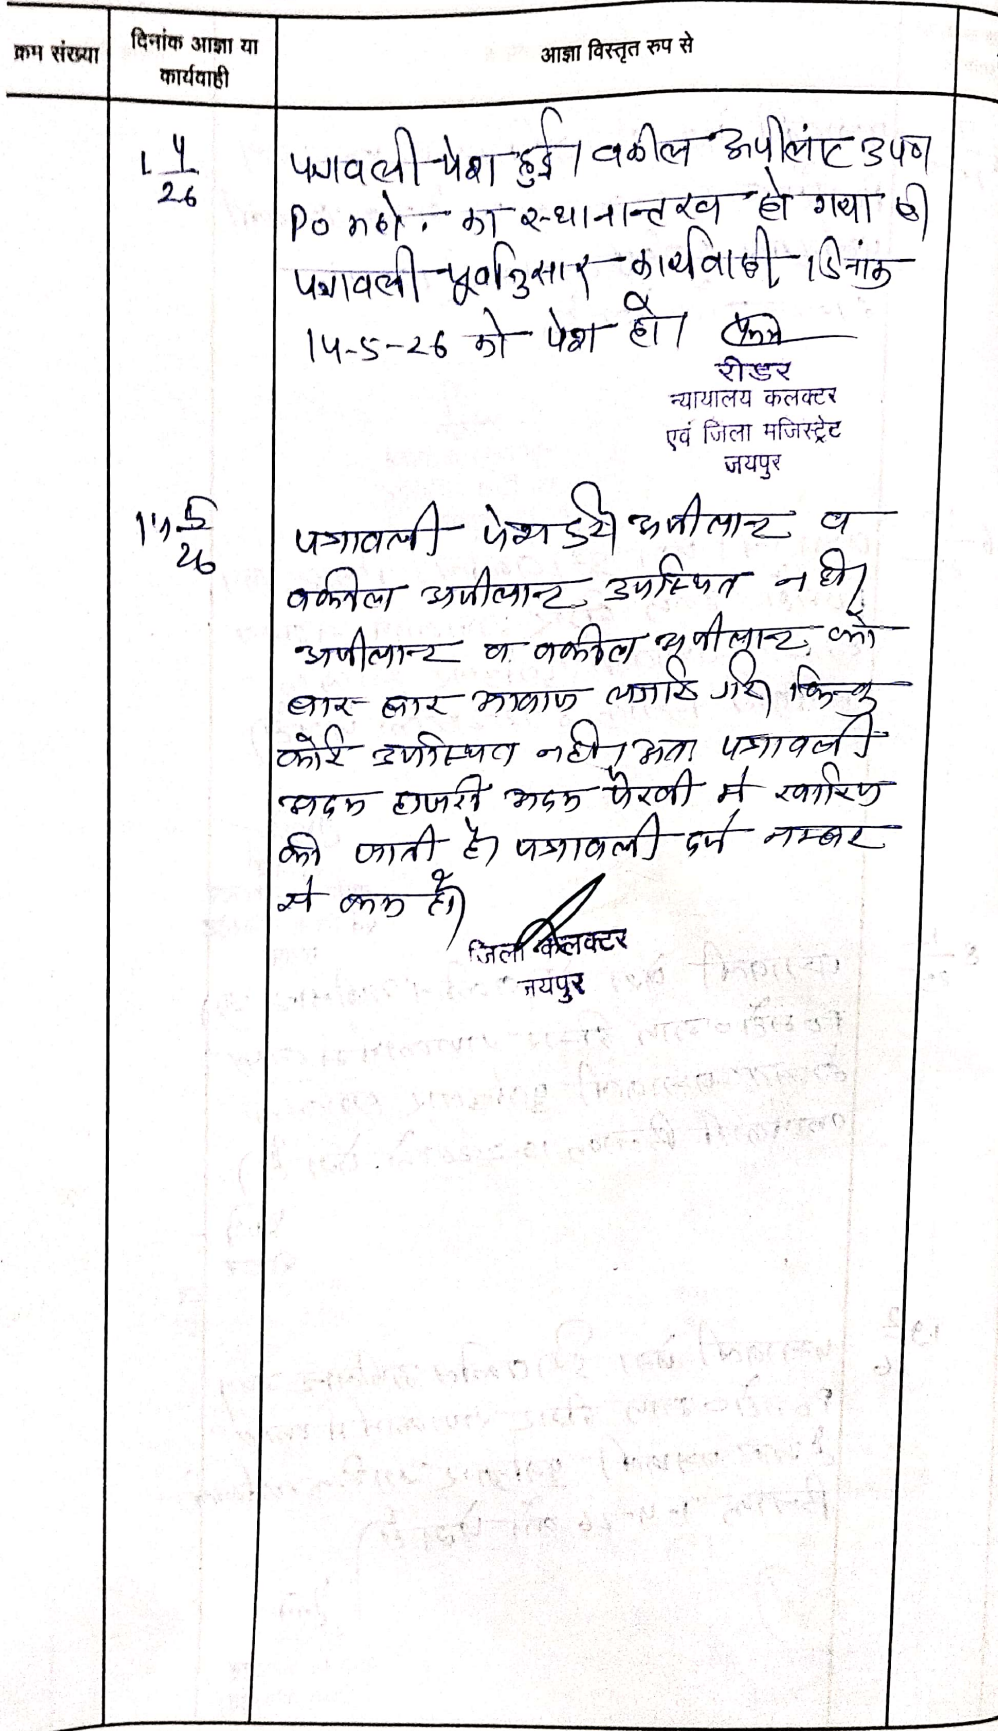 क्रम संख्या
दिनांक आज्ञा या
कार्यवाही
आज्ञा विस्तृत रुप से
1 4/26
पत्रावली पेश हुई। वकील अपीलांट उप०
PO महो. का स्थानान्तरण हो गया है
पत्रावली पूर्वानुसार कार्यवाही। दिनांक
14-5-26 को पेश हो।
रीडर
न्यायालय कलक्टर
एवं जिला मजिस्ट्रेट
जयपुर
5/26
पत्रावली पेश हुयी अपीलान्ट व
वकील अपीलान्ट उपस्थित नही।
अपीलान्ट व वकील अपीलान्ट को
बार-बार आवाज लगाई गई। किन्तु
कोई उपस्थित नही। अतः पत्रावली
अदम हाजरी अदम पैरवी में खारिज
की जाती है। पत्रावली दर्ज नम्बर
से कम हो।
जिला कलक्टर
जयपुर